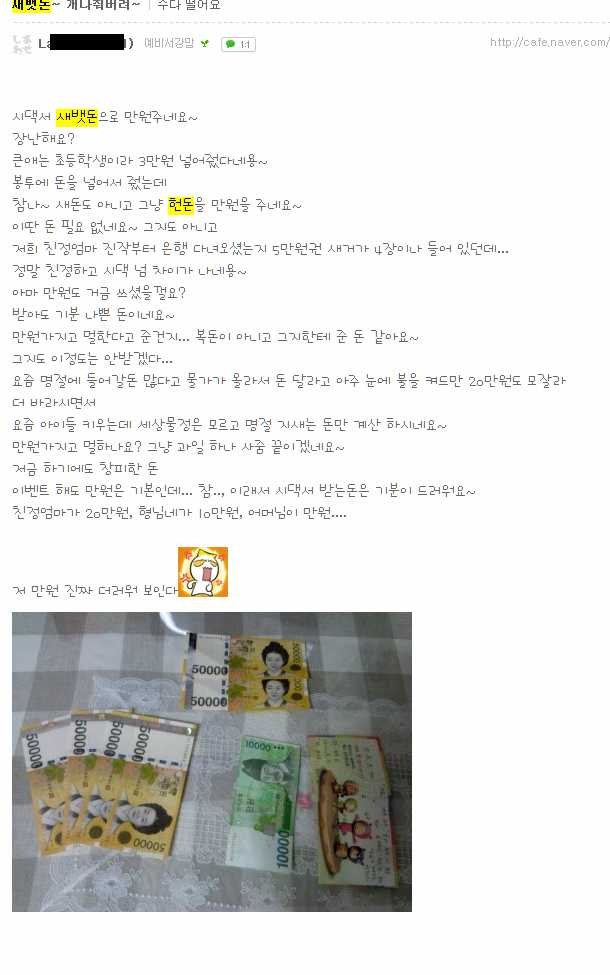 새뱃돈~ 개나줘버려~ | 수다 떨어요
La 1) 예비서강맘 1:1
http://cafe.naver.com/
시댁서 새뱃돈으로 만원주네요~
장난해요?
큰애는 초등학생이라 3만원 넣어줬다네용~
봉투에 돈을 넣어서 줬는데
참나~ 새돈도 아니고 그냥 헌돈을 만원을 주네요~
이딴 돈 필요 없네요~ 그지도 아니고
저희 친정엄마 진작부터 은행 다녀오셨는지 5만원권 새거가 4장이나 들어 있던데...
정말 친정하고 시댁 넘 차이가 나네용~
아마 만원도 거금 쓰셨을껄요?
받아도 기분 나쁜 돈이네요~
만원가지고 멀한다고 준건지... 복돈이 아니고 그지한테 준 돈 같아요~
그지도 이정도는 안받겠다...
요즘 명절에 들어갈돈 많다고 물가가 올라서 돈 달라고 아주 눈에 불을 켜드만 20만원도 모잘라
더 바라시면서
요즘 아이들 키우는데 세상물정은 모르고 명절 지새는 돈만 계산 하시네요~
만원가지고 멀하나요? 그냥 과일 하나 사줌 끝이겠네요~
저금 하기에도 창피한 돈
이벤트 해도 만원은 기본인데... 참.., 이래서 시댁서 받는돈은 기분이 드러워요~
친정엄마가 20만원, 형님네가 10만원, 어머님이 만원....
저 만원 진짜 더러워 보인다
50000
50000
50000
50000
50000
10000
10000